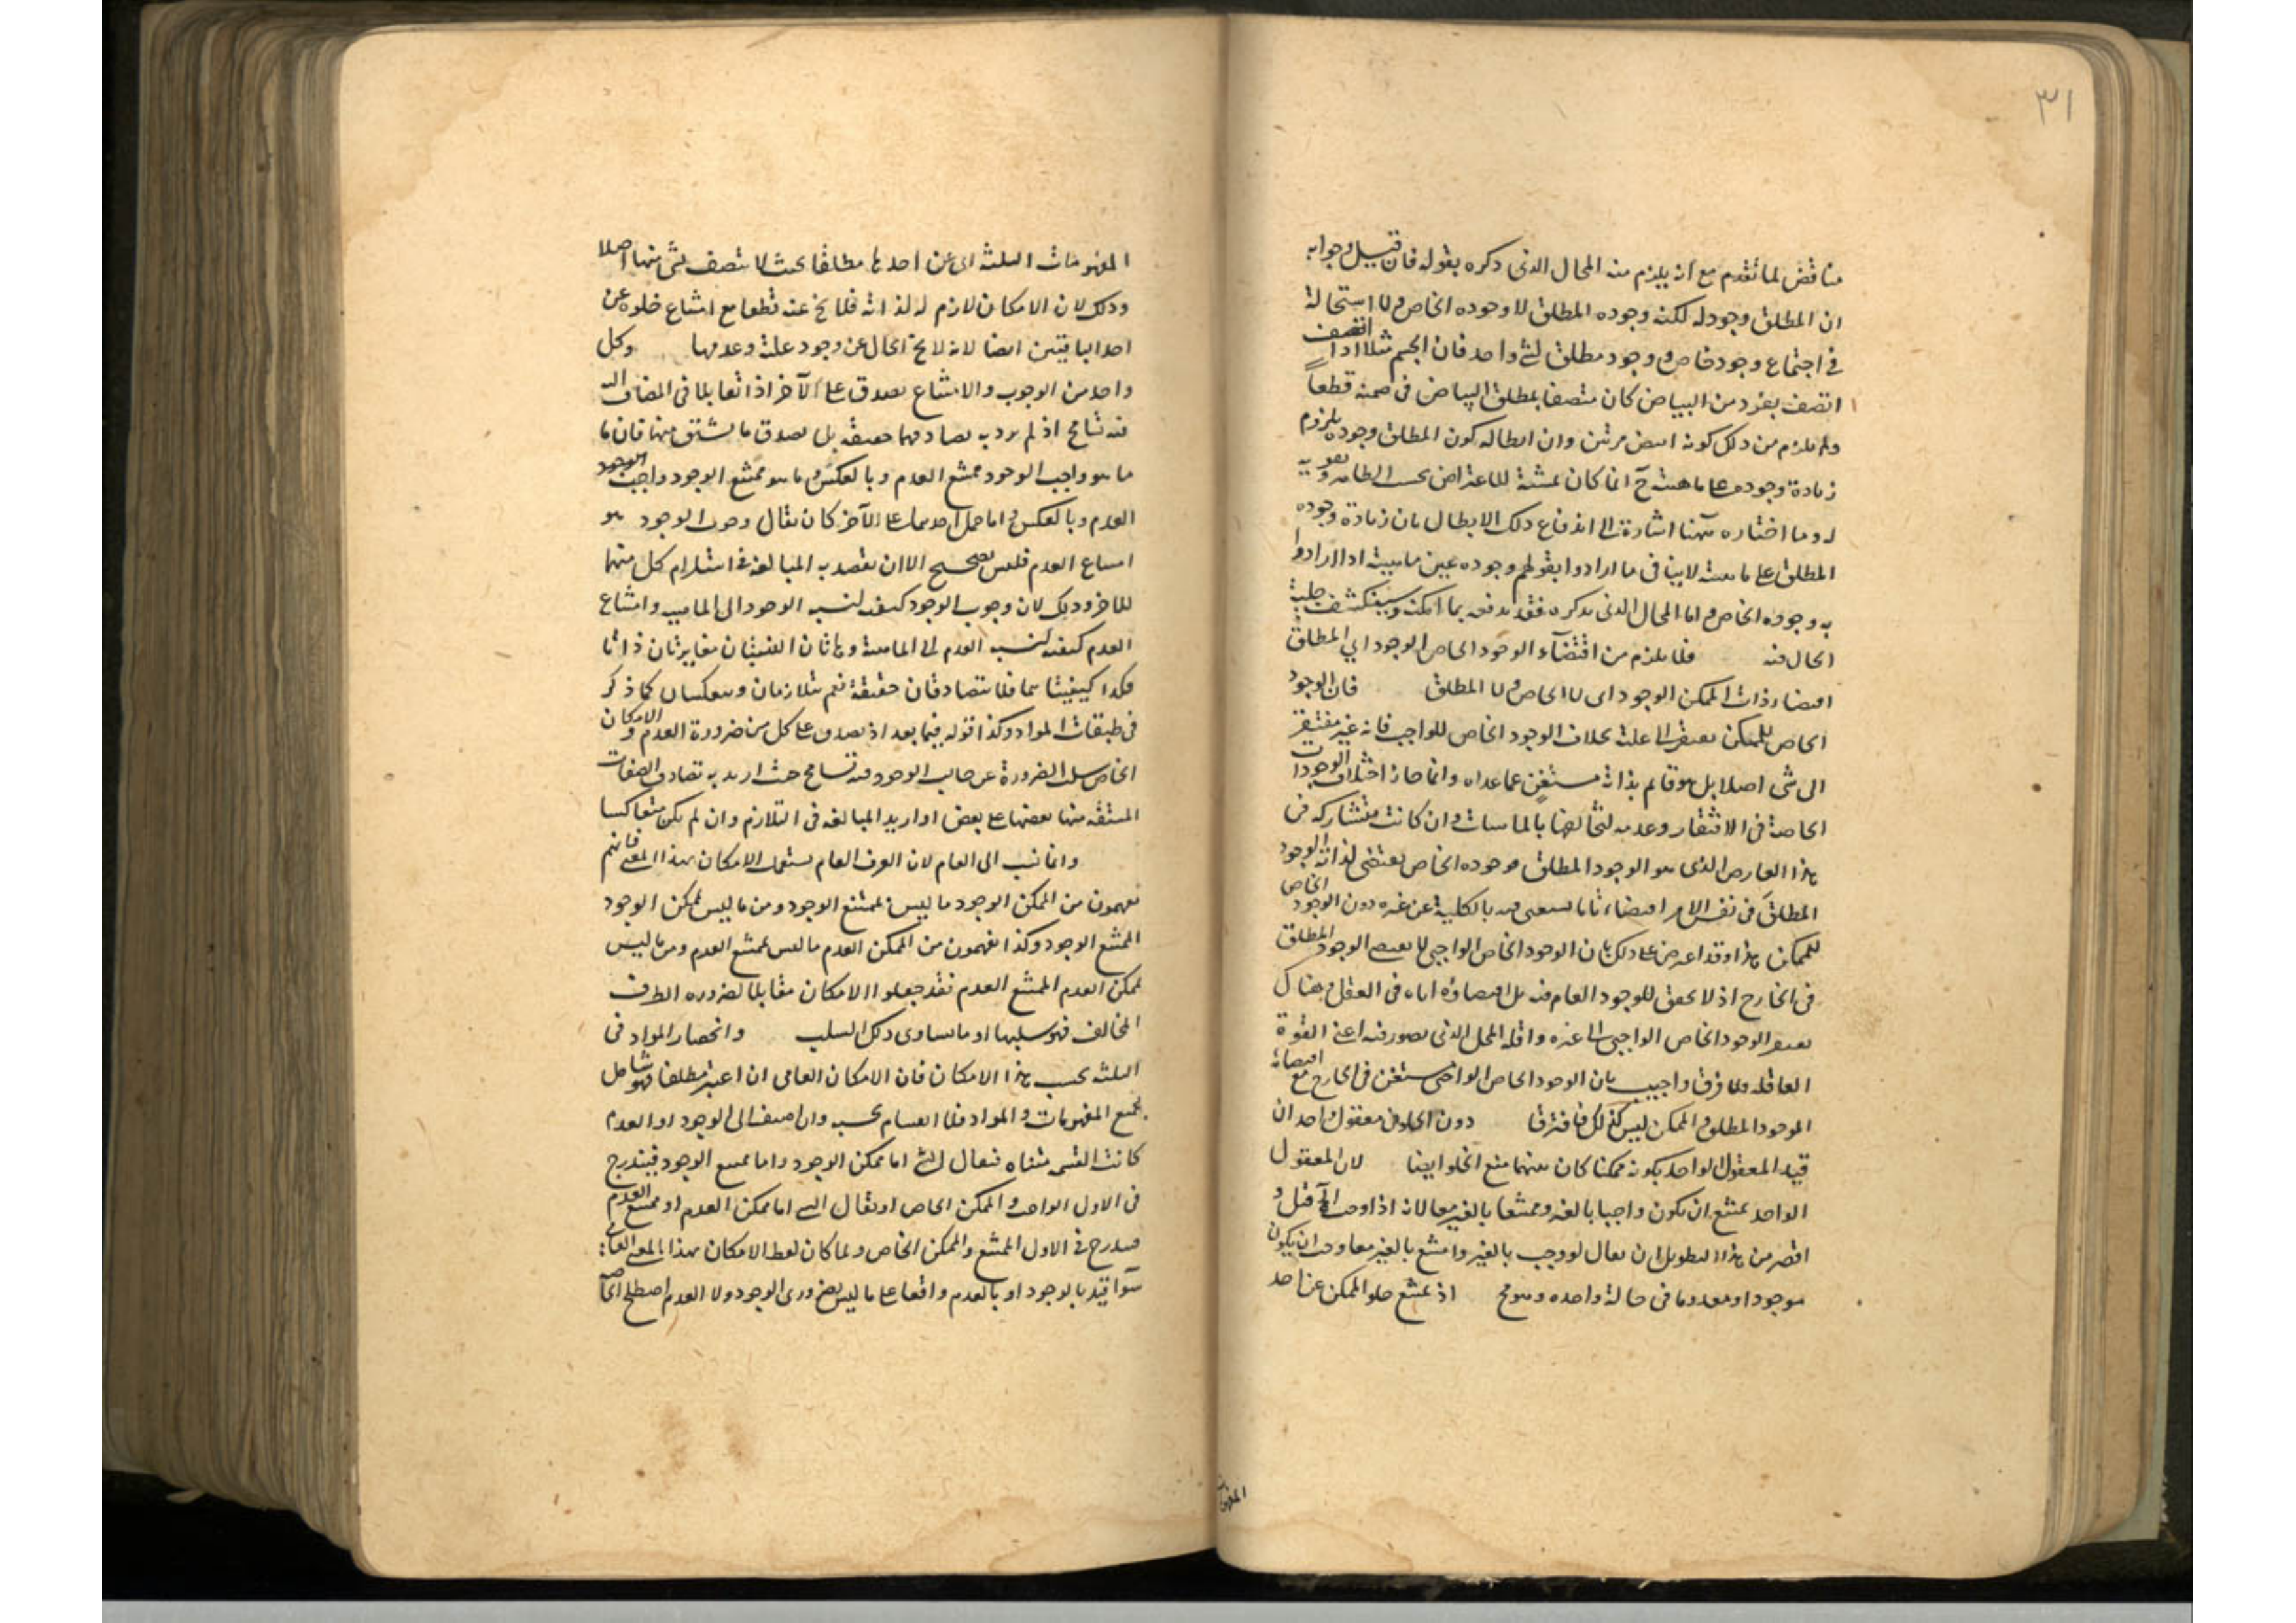 ٣١
مناقض لما تقدم مع انه يلزم منه المحال الذى ذكره بقوله فان قيل وجوابه
ان المطلق وجود له لكنه وجوده المطلق لا وجوده الخاص ولا استحالة
فى اجتماع وجود خاص ووجود مطلق لشئ واحد فان الجسم مثلا اذا اتصف
اتصف بفرد من البياض كان متصفا بمطلق البياض فى ضمنه قطعاً
ولم يلزم من ذلك كونه ابيض مرتين وان ابطاله كون المطلق وجوده بلزوم
زيادة وجوده على ماهيته ح انما كان تمشية للاعتراض بحسب الظاهر وتقوية
له وما اختاره ههنا اشارة الى اندفاع ذلك الابطال بان زيادة وجوده
المطلق على ماهيته لا ينافى ما ارادوا بقولهم وجوده عين ماهيته اذ ارادوا
به وجوده الخاص واما المحال الذى يذكره فقد يدفعه بما امكنه وسينكشف جلية
الحال فيه فلا يلزم من اقتضاء الوجود الخاص الوجود اي المطلق
اقتضاء ذات الممكن الوجود اى لا الخاص ولا المطلق فان الوجود
الخاص للممكن يفتقر الى علته بخلاف الوجود الخاص للواجب فانه غير مفتقر
الى شئ اصلا بل هو قائم بذاته مستغنٍ عما عداه وانما جاز اختلاف الوجودات
الخاصة فى الافتقار وعدمه لتخالفها بالماهيات وان كانت متشاركة فى
هذا العارض الذى هو الوجود المطلق فوجوده الخاص يقتضى لذاته الوجود
المطلق فى نفس الامر اقتضاء تاما يستغنى فيه بالكلية عن غيره دون الوجود الخاص
للممكن هذا وقد اعترض على ذلك بان الوجود الخاص الواجبى لا يقتضى الوجود المطلق
فى الخارج اذ لا تحقق للوجود العام فيه بل اقتضاؤه اياه فى العقل وهناك
يفتقر الوجود الخاص الواجبى الى غيره واقله المحل الذى يتصور فيه اعنى القوة
العاقلة فلا فرق واجيب بان الوجود الخاص الواجبى مستغن فى الخارج مع اقتضائه
الوجود المطلق والممكن ليس كذلك فافترقا دون الخلو عن معقول واحد ان
قيد المعقول الواحد بكونه ممكنا كان بينهما منع الخلو ايضا لان المعقول
الواحد يمتنع ان يكون واجبا بالغير وممتنعا بالغير معا لانه اذا وجب الآخر قبل و
اقصر من هذا التطويل ان يقال لو وجب بالغير وامتنع بالغير معا وجب ان يكون
موجودا ومعدوما فى حالة واحدة وهو مح اذ يمتنع خلو الممكن عن احد
المفهومات
المفهومات الثلثة اى عن احدها مطلقا بحيث لا يتصف بشئ منها اصلا
وذلك لان الامكان لازم له لذاته فلا يخ عنه قطعا مع امتناع خلوه عن
احد الباقيين ايضا لانه لا يخ الحال عن وجود علته وعدمها وكل
واحد من الوجوب والامتناع يصدق على الآخر اذا تقابلا فى المضاف اليه
فيه تسامح اذ لم يرد به تصادقهما حقيقة بل تصدق ما يشتق منهما فان ما
ما هو واجب الوجود ممتنع العدم وبالعكس وما هو ممتنع الوجود واجب الوجود
العدم وبالعكس واما حمل احدهما على الآخر كان يقال وجوب الوجود هو
امتناع العدم فليس بصحيح الا ان يقصد به المبالغة فى استلزام كل منهما
للآخر وذلك لان وجوب الوجود كيفية لنسبة الوجود الى الماهية وامتناع
العدم كيفية لنسبة العدم الى الماهية وهاتان النسبتان متغايرتان ذاتا
فكذا كيفيتاهما فلا يتصادقان حقيقة نعم يتلازمان وينعكسان كما ذكر
فى طبقات المواد وكذا قوله فيما بعد اذ يصدق على كل من ضرورة العدم والامكان
الخاص سلب الضرورة عن جانب الوجود فيه تسامح حيث اريد به تصادق الصفات
المشتقة منها بعضها على بعض او اريد المبالغة فى التلازم وان لم يكن متعاكسا
وانما نسب الى العام لان العرف العام يستعمل الامكان بهذا المعنى فانهم
يفهمون من الممكن الوجود ما ليس بممتنع الوجود ومن ما ليس بممكن الوجود
الممتنع الوجود وكذا يفهمون من الممكن العدم ما ليس بممتنع العدم ومن ما ليس
بممكن العدم الممتنع العدم فقد جعلوا الامكان مقابلا لضرورة الطرف
المخالف فهو سلبها او ما يساوى ذلك السلب وانحصار المواد فى
الثلثة بحسب هذا الامكان فان الامكان العامى ان اعتبر مطلقا فهو شامل
لجميع المفهومات والمواد فلا انقسام بحسبه وان اضيف الى الوجود او العدم
كانت القسمة مثناه فيقال الشئ اما ممكن الوجود واما ممتنع الوجود فيندرج
فى الاول الواجب والممكن الخاص او يقال الشئ اما ممكن العدم او ممتنع العدم
فيندرج فى الاول الممتنع والممكن الخاص ولما كان لفظ الامكان بهذا المعنى العام
سوآ قيد بالوجود او بالعدم واقعا على ما ليس بضرورى الوجود ولا العدم اصطلح الخاصة